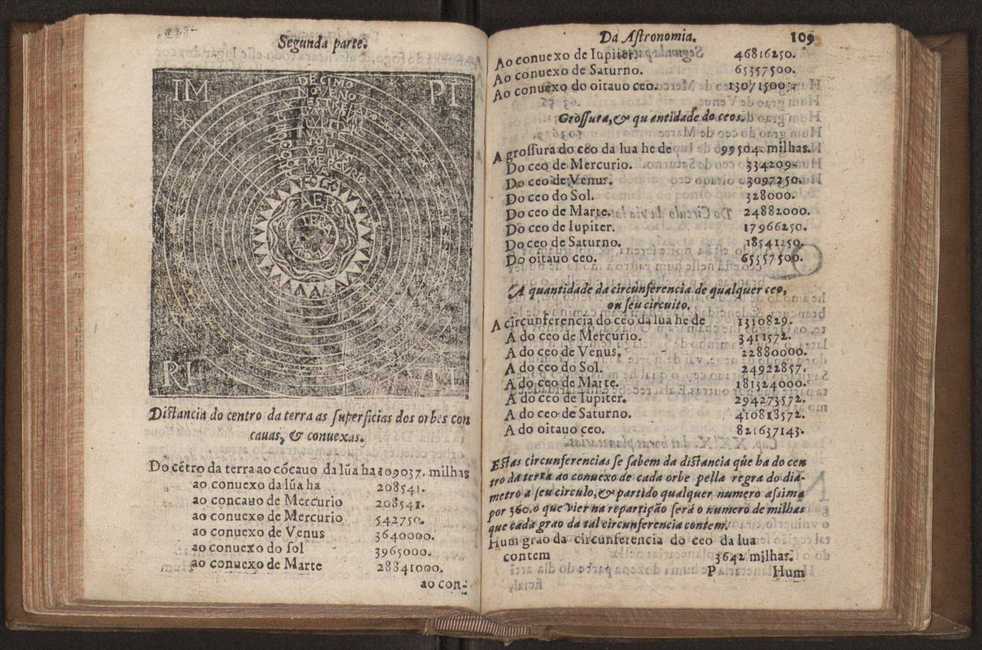 Segunda parte.
IM PI
RI
Distancia do centro da terra as superficias dos orbes con
cauas, & conuexas.
Do cẽtro da terra ao cõcauo da lũa ha 109037. milhas
ao conuexo da lũa ha 208541.
ao concauo de Mercurio 208541.
ao conuexo de Mercurio 542750.
ao conuexo de Venus 3640000.
ao conuexo do sol 3965000.
ao conuexo de Marte 28841000.
ao con-
Da Astronomia. 109
Ao conuexo de Iupiter. 46816250.
Ao conuexo de Saturno. 65357500.
Ao conuexo do oitauo ceo. 130715000.
Grossura, & quantidade do ceos.
A grossura do ceo da lua he de 99504. milhas.
Do ceo de Mercurio. 334209.
Do ceo de Venus. 3097250.
Do ceo do Sol. 328000.
Do ceo de Marte. 24882000.
Do ceo de Iupiter. 17966250.
Do ceo de Saturno. 18541250.
Do oitauo ceo. 65357500.
A quantidade da circunferencia de qualquer ceo,
ou seu circuito.
A circunferencia do ceo da lua he de 1310829.
A do ceo de Mercurio. 3411572.
A do ceo de Venus. 22880000.
A do ceo do Sol. 24922857.
A do ceo de Marte. 181324000.
A do ceo de Iupiter. 294273572.
A do ceo de Saturno. 410818572.
A do oitauo ceo. 821637143.
Estas circunferencias se sabem da distancia que ha do cen
tro da terra ao conuexo de cada orbe pella regra do dia-
metro a seu circulo, & partido qualquer numero assima
por 360. o que vier na repartição será o numero de milhas
que cada grao da tal circunferencia contem.
Hum grao da circunferencia do ceo da lua
contem 3642 milhas.
P Hum